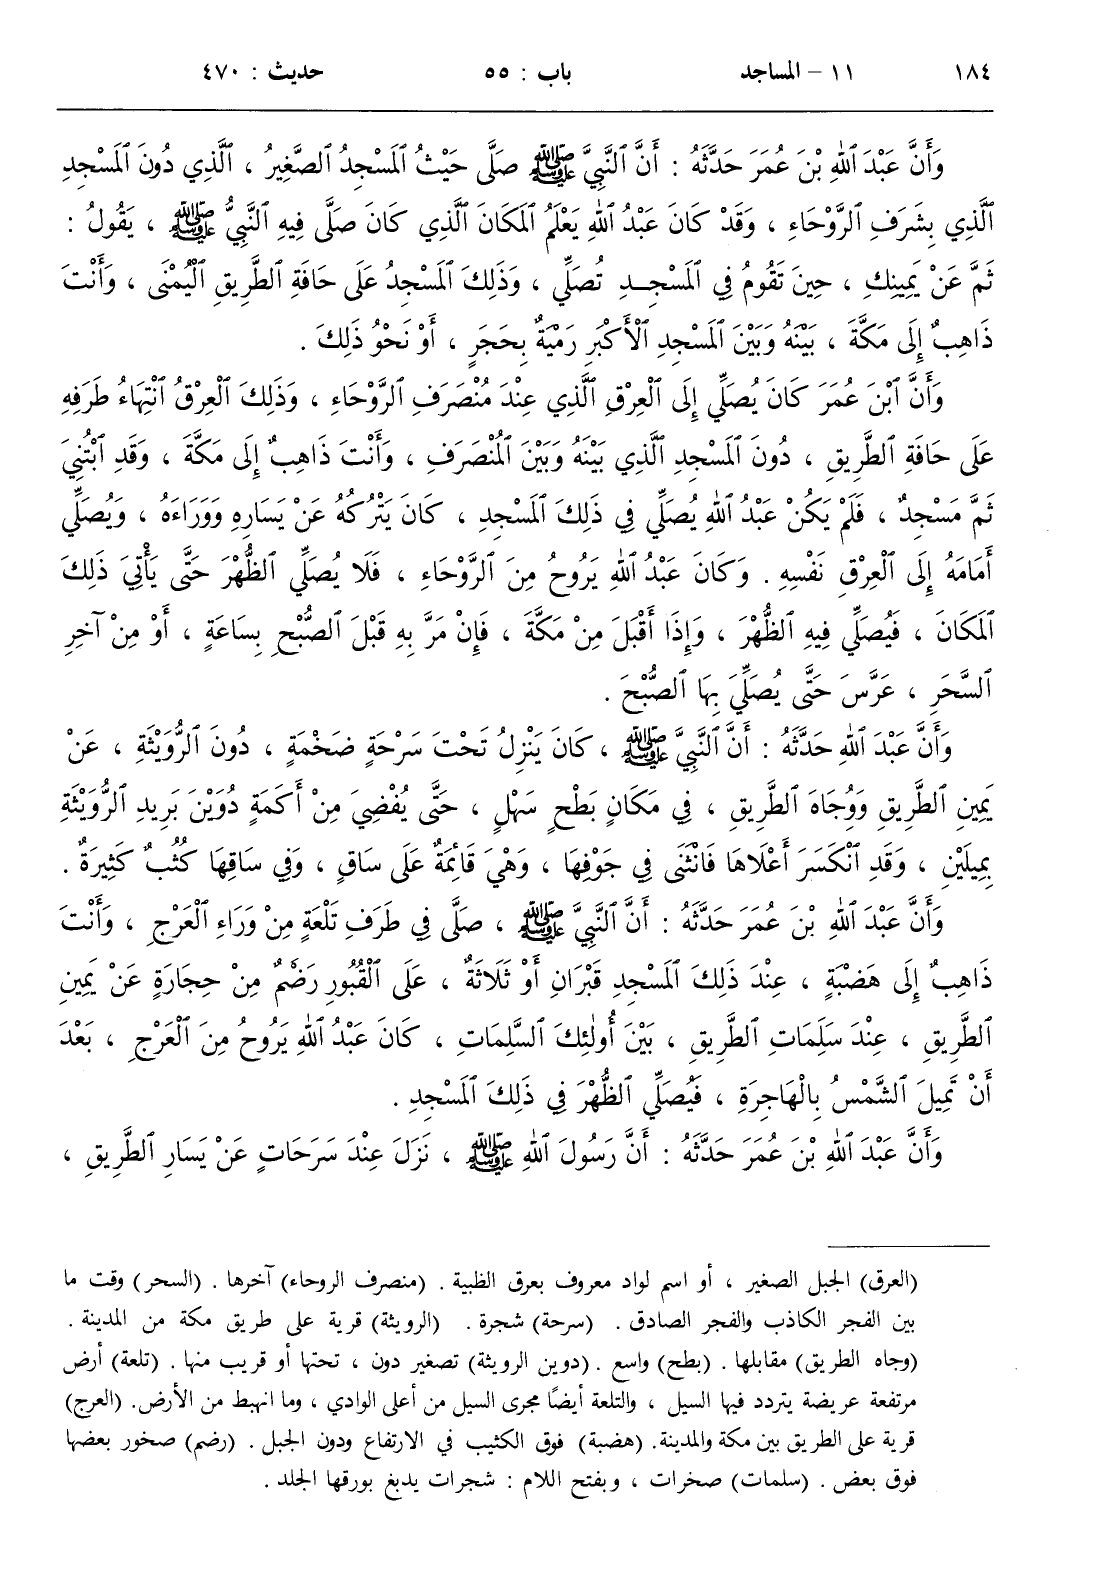 ١٨٤ ١١ - المساجد باب : ٥٥ حديث : ٤٧٠
وَأَنَّ عَبْدَ ٱللهِ بْنَ عُمَرَ حَدَّثَهُ : أَنَّ ٱلنَّبِيَّ ﷺ صَلَّى حَيْثُ ٱلْمَسْجِدُ ٱلصَّغِيرُ ، ٱلَّذِي دُونَ ٱلْمَسْجِدِ
ٱلَّذِي بِشَرَفِ ٱلرَّوْحَاءِ ، وَقَدْ كَانَ عَبْدُ ٱللهِ يَعْلَمُ ٱلْمَكَانَ ٱلَّذِي كَانَ صَلَّى فِيهِ ٱلنَّبِيُّ ﷺ ، يَقُولُ :
ثَمَّ عَنْ يَمِينِكَ ، حِينَ تَقُومُ فِي ٱلْمَسْجِدِ تُصَلِّي ، وَذَلِكَ ٱلْمَسْجِدُ عَلَى حَافَةِ ٱلطَّرِيقِ ٱلْيُمْنَى ، وَأَنْتَ
ذَاهِبٌ إِلَى مَكَّةَ ، بَيْنَهُ وَبَيْنَ ٱلْمَسْجِدِ ٱلْأَكْبَرِ رَمْيَةٌ بِحَجَرٍ ، أَوْ نَحْوُ ذَلِكَ .
وَأَنَّ ٱبْنَ عُمَرَ كَانَ يُصَلِّي إِلَى ٱلْعِرْقِ ٱلَّذِي عِنْدَ مُنْصَرَفِ ٱلرَّوْحَاءِ ، وَذَلِكَ ٱلْعِرْقُ ٱنْتِهَاءُ طَرَفِهِ
عَلَى حَافَةِ ٱلطَّرِيقِ ، دُونَ ٱلْمَسْجِدِ ٱلَّذِي بَيْنَهُ وَبَيْنَ ٱلْمُنْصَرَفِ ، وَأَنْتَ ذَاهِبٌ إِلَى مَكَّةَ ، وَقَدِ ٱبْتُنِيَ
ثَمَّ مَسْجِدٌ ، فَلَمْ يَكُنْ عَبْدُ ٱللهِ يُصَلِّي فِي ذَلِكَ ٱلْمَسْجِدِ ، كَانَ يَتْرُكُهُ عَنْ يَسَارِهِ وَوَرَاءَهُ ، وَيُصَلِّي
أَمَامَهُ إِلَى ٱلْعِرْقِ نَفْسِهِ . وَكَانَ عَبْدُ ٱللهِ يَرُوحُ مِنَ ٱلرَّوْحَاءِ ، فَلَا يُصَلِّي ٱلظُّهْرَ حَتَّى يَأْتِيَ ذَلِكَ
ٱلْمَكَانَ ، فَيُصَلِّي فِيهِ ٱلظُّهْرَ ، وَإِذَا أَقْبَلَ مِنْ مَكَّةَ ، فَإِنْ مَرَّ بِهِ قَبْلَ ٱلصُّبْحِ بِسَاعَةٍ ، أَوْ مِنْ آخِرِ
ٱلسَّحَرِ ، عَرَّسَ حَتَّى يُصَلِّيَ بِهَا ٱلصُّبْحَ .
وَأَنَّ عَبْدَ ٱللهِ حَدَّثَهُ : أَنَّ ٱلنَّبِيَّ ﷺ ، كَانَ يَنْزِلُ تَحْتَ سَرْحَةٍ ضَخْمَةٍ ، دُونَ ٱلرُّوَيْثَةِ ، عَنْ
يَمِينِ ٱلطَّرِيقِ وَوُجَاهَ ٱلطَّرِيقِ ، فِي مَكَانٍ بَطْحٍ سَهْلٍ ، حَتَّى يُفْضِيَ مِنْ أَكَمَةٍ دُوَيْنَ بَرِيدِ ٱلرُّوَيْثَةِ
بِمِيلَيْنِ ، وَقَدِ ٱنْكَسَرَ أَعْلَاهَا فَٱنْثَنَى فِي جَوْفِهَا ، وَهْيَ قَائِمَةٌ عَلَى سَاقٍ ، وَفِي سَاقِهَا كُثُبٌ كَثِيرَةٌ .
وَأَنَّ عَبْدَ ٱللهِ بْنَ عُمَرَ حَدَّثَهُ : أَنَّ ٱلنَّبِيَّ ﷺ ، صَلَّى فِي طَرَفِ تَلْعَةٍ مِنْ وَرَاءِ ٱلْعَرْجِ ، وَأَنْتَ
ذَاهِبٌ إِلَى هَضْبَةٍ ، عِنْدَ ذَلِكَ ٱلْمَسْجِدِ قَبْرَانِ أَوْ ثَلَاثَةٌ ، عَلَى ٱلْقُبُورِ رَضْمٌ مِنْ حِجَارَةٍ عَنْ يَمِينِ
ٱلطَّرِيقِ ، عِنْدَ سَلِمَاتِ ٱلطَّرِيقِ ، بَيْنَ أُولٰئِكَ ٱلسَّلِمَاتِ ، كَانَ عَبْدُ ٱللهِ يَرُوحُ مِنَ ٱلْعَرْجِ ، بَعْدَ
أَنْ تَمِيلَ ٱلشَّمْسُ بِالْهَاجِرَةِ ، فَيُصَلِّي ٱلظُّهْرَ فِي ذَلِكَ ٱلْمَسْجِدِ .
وَأَنَّ عَبْدَ ٱللهِ بْنَ عُمَرَ حَدَّثَهُ : أَنَّ رَسُولَ ٱللهِ ﷺ ، نَزَلَ عِنْدَ سَرَحَاتٍ عَنْ يَسَارِ ٱلطَّرِيقِ ،
(العرق) الجبل الصغير ، أو اسم لواد معروف بعرق الظبية . (منصرف الروحاء) آخرها . (السحر) وقت ما
بين الفجر الكاذب والفجر الصادق . (سرحة) شجرة . (الرويثة) قرية على طريق مكة من المدينة .
(وجاه الطريق) مقابلها . (بطح) واسع . (دوين الرويثة) تصغير دون ، تحتها أو قريب منها . (تلعة) أرض
مرتفعة عريضة يتردد فيها السيل ، والتلعة أيضًا مجرى السيل من أعلى الوادي ، وما انهبط من الأرض. (العرج)
قرية على الطريق بين مكة والمدينة. (هضبة) فوق الكثيب في الارتفاع ودون الجبل . (رضم) صخور بعضها
فوق بعض . (سلمات) صخرات ، وبفتح اللام : شجرات يدبغ بورقها الجلد .